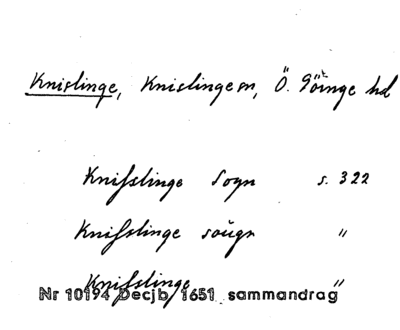 Knislinge, Knislinge sn, Ö. Göinge hd
Knifslinge Sogn s. 322
Knifslinge sougn "
Knifslinge "
Nr 10194 Decjb 1651 sammandrag